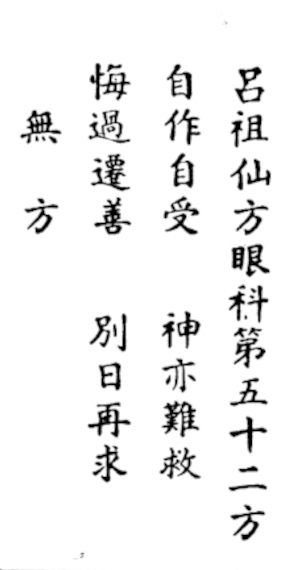 呂祖仙方眼科第五十二方
自作自受　神亦難救
悔過遷善　別日再求
無方